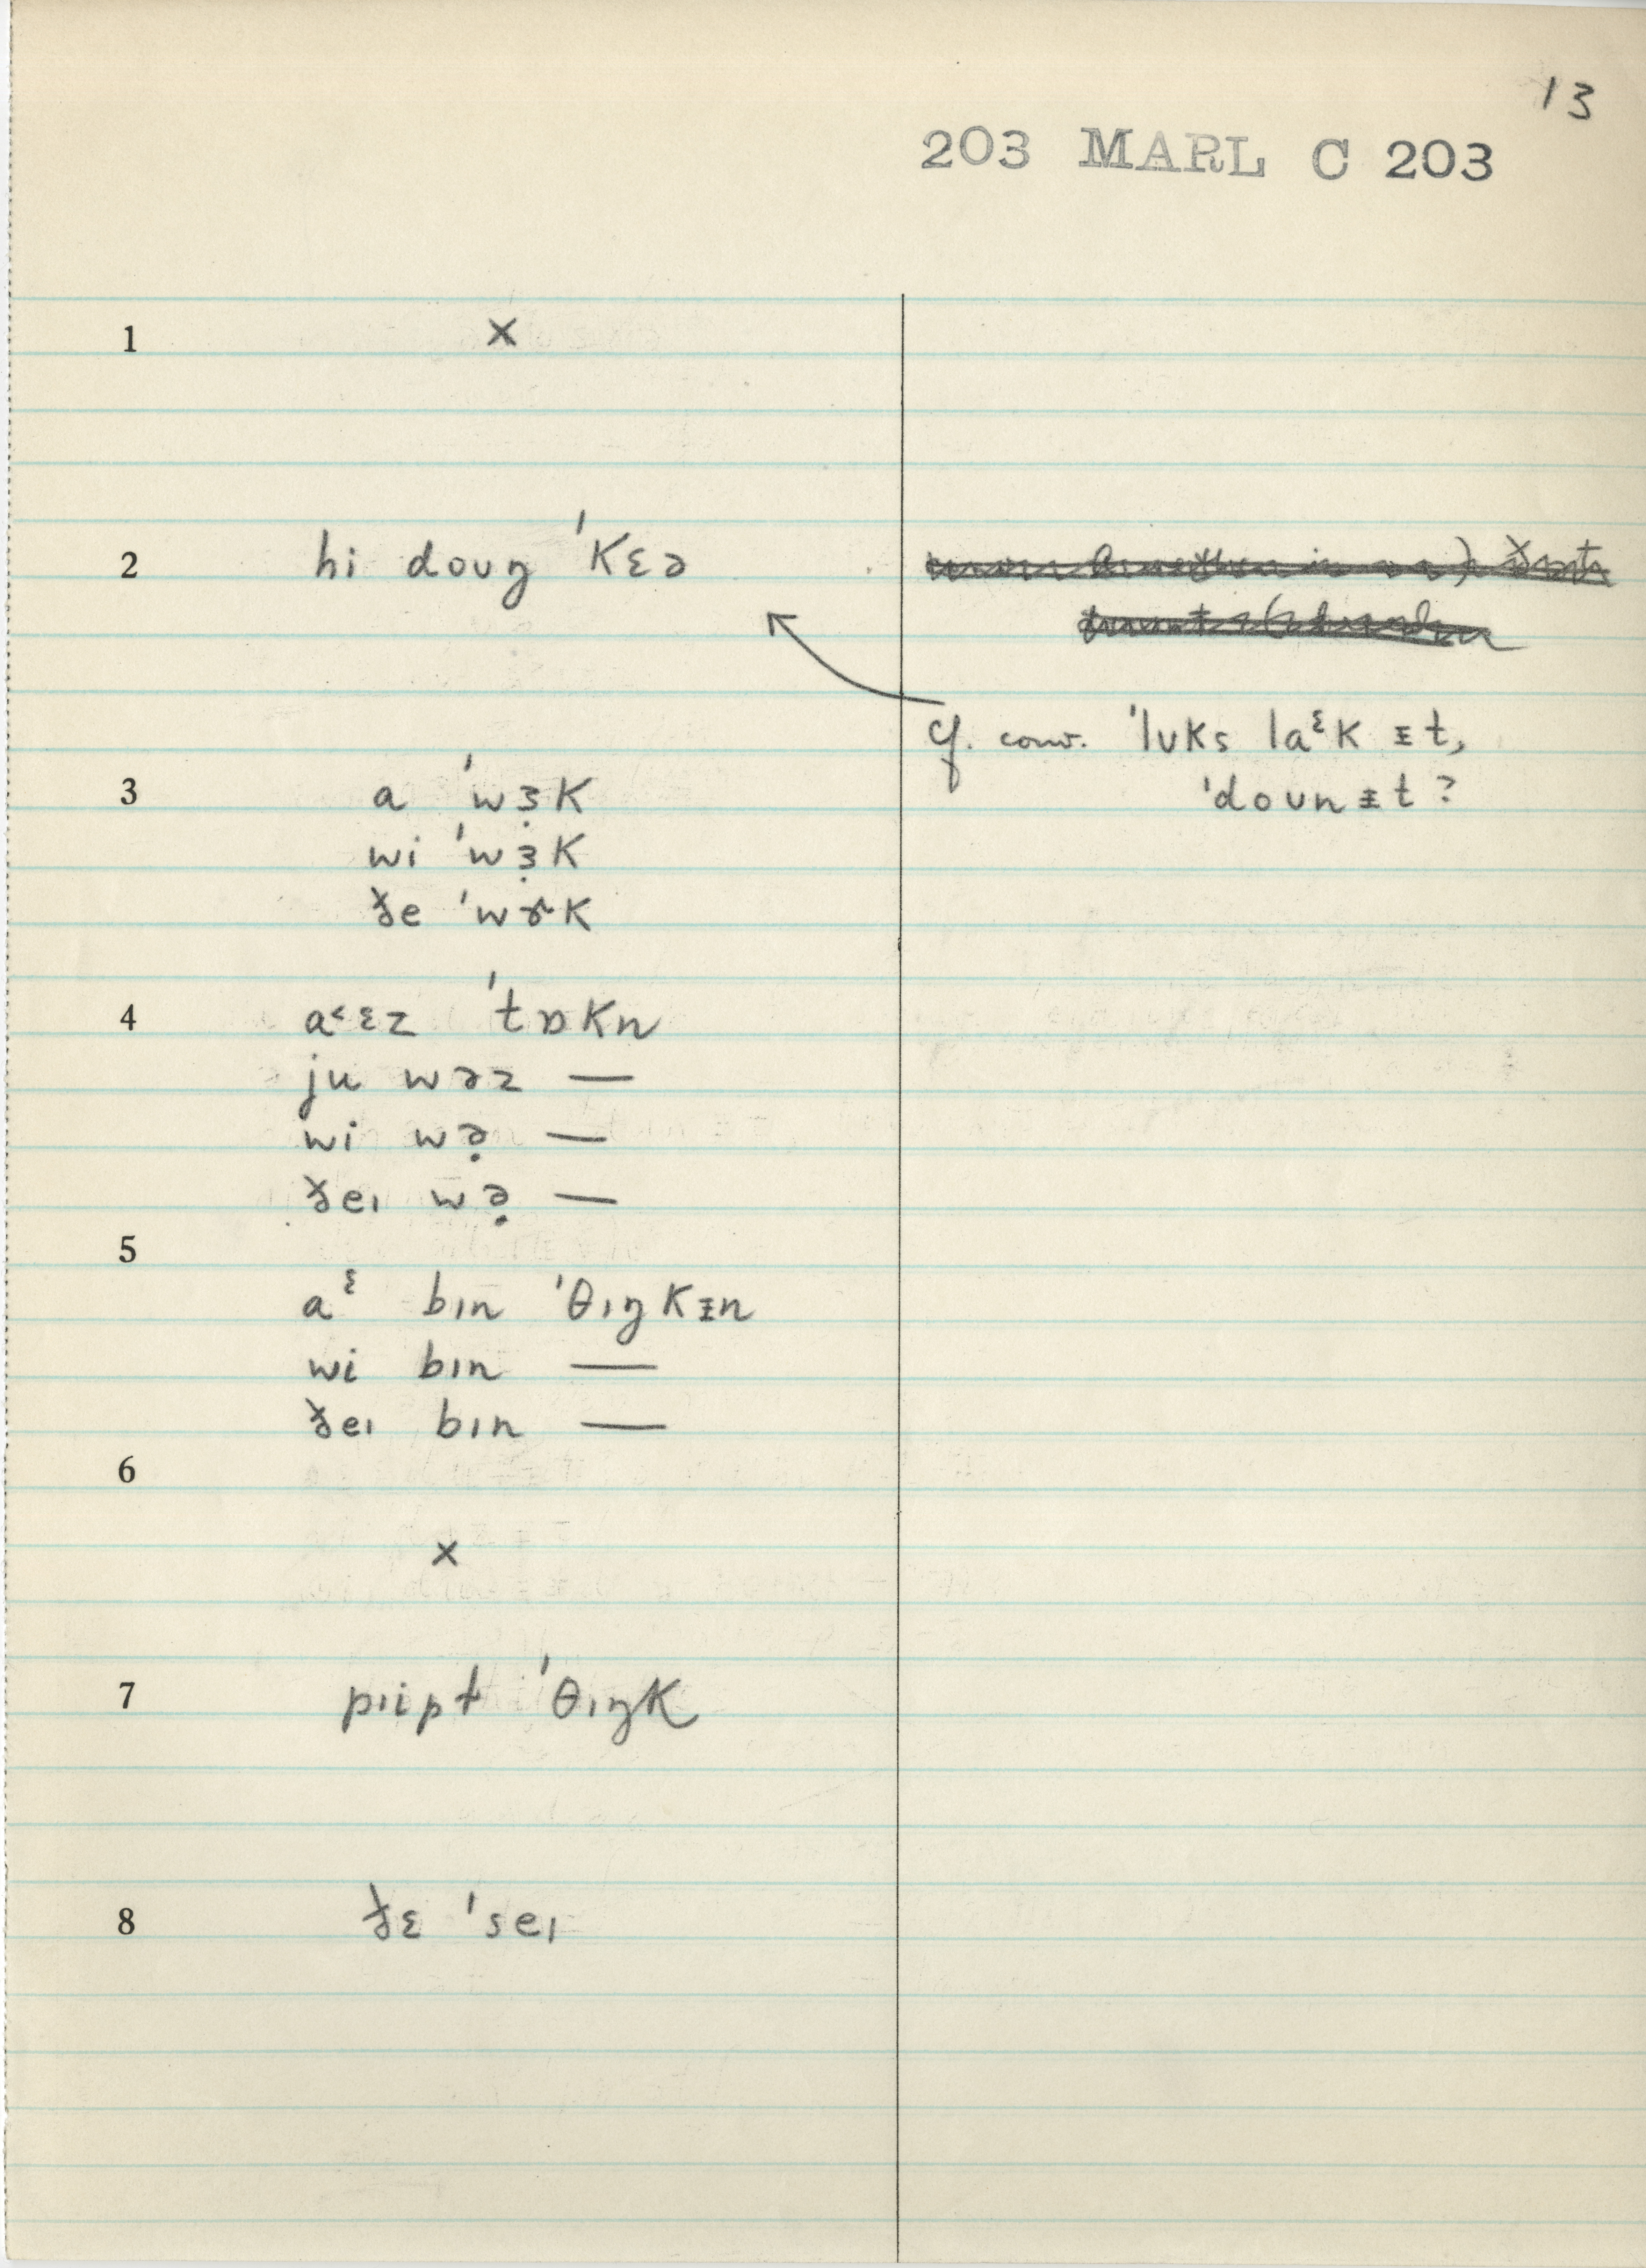 13
203 MARL C 203
1 ×
2 hi doʊŋ ˈkɛə
cf. conv. ˈlʊks laᵋk ᵻt,
ˈdoʊnᵻt?
3 a ˈwɜ̣k
wi ˈwɜ̣k
ðe ˈwɝk
4 a˂ɛz ˈtɒkn
ju wəz —
wi wə̣ —
ðeɪ wə̣ —
5
aᵋ bɪn ˈθɪŋkᵻn
wi bɪn —
ðeɪ bɪn —
6
×
7 pɪipt ˈθɪŋk
8 ðɛ ˈseɪ